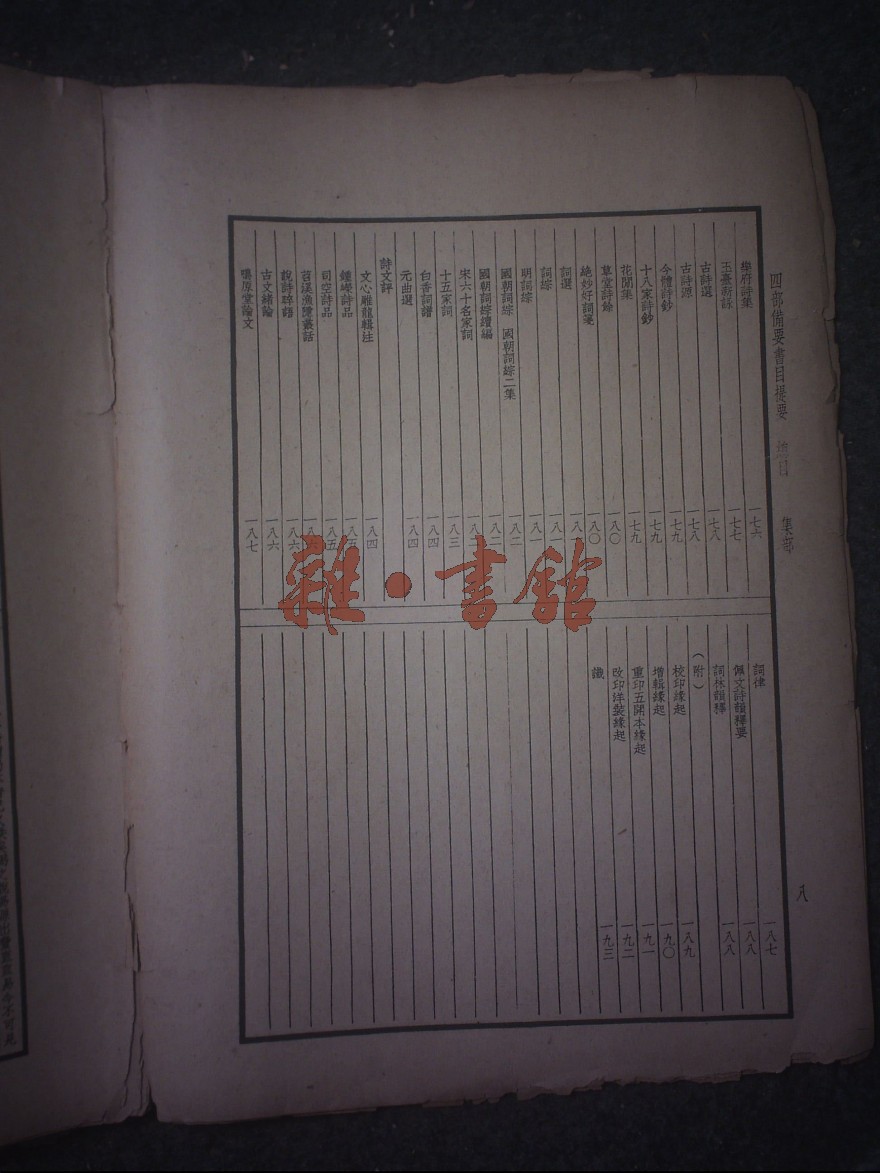 四部備要書目提要 總目 集部 八
樂府詩集 一七六
玉臺新詠 一七七
古詩選 一七八
古詩源 一七八
今體詩鈔 一七九
十八家詩鈔 一七九
花間集 一七九
草堂詩餘 一八〇
絕妙好詞箋 一八〇
詞選
詞綜
明詞綜 一八一
國朝詞綜 國朝詞綜二集 一八二
國朝詞綜續編 一八二
宋六十名家詞
十五家詞 一八三
白香詞譜 一八四
元曲選 一八四
詩文評
文心雕龍輯注 一八四
鍾嶸詩品 一八五
司空詩品 一八五
苕溪漁隱叢話
說詩晬語 一八六
古文緒論 一八六
鳴原堂論文 一八七
詞律 一八七
佩文詩韻釋要 一八八
詞林韻釋 一八八
（附）
校印緣起 一八九
增輯緣起 一九〇
重印五開本緣起 一九一
改印洋裝緣起 一九二
識 一九三
雜·書館